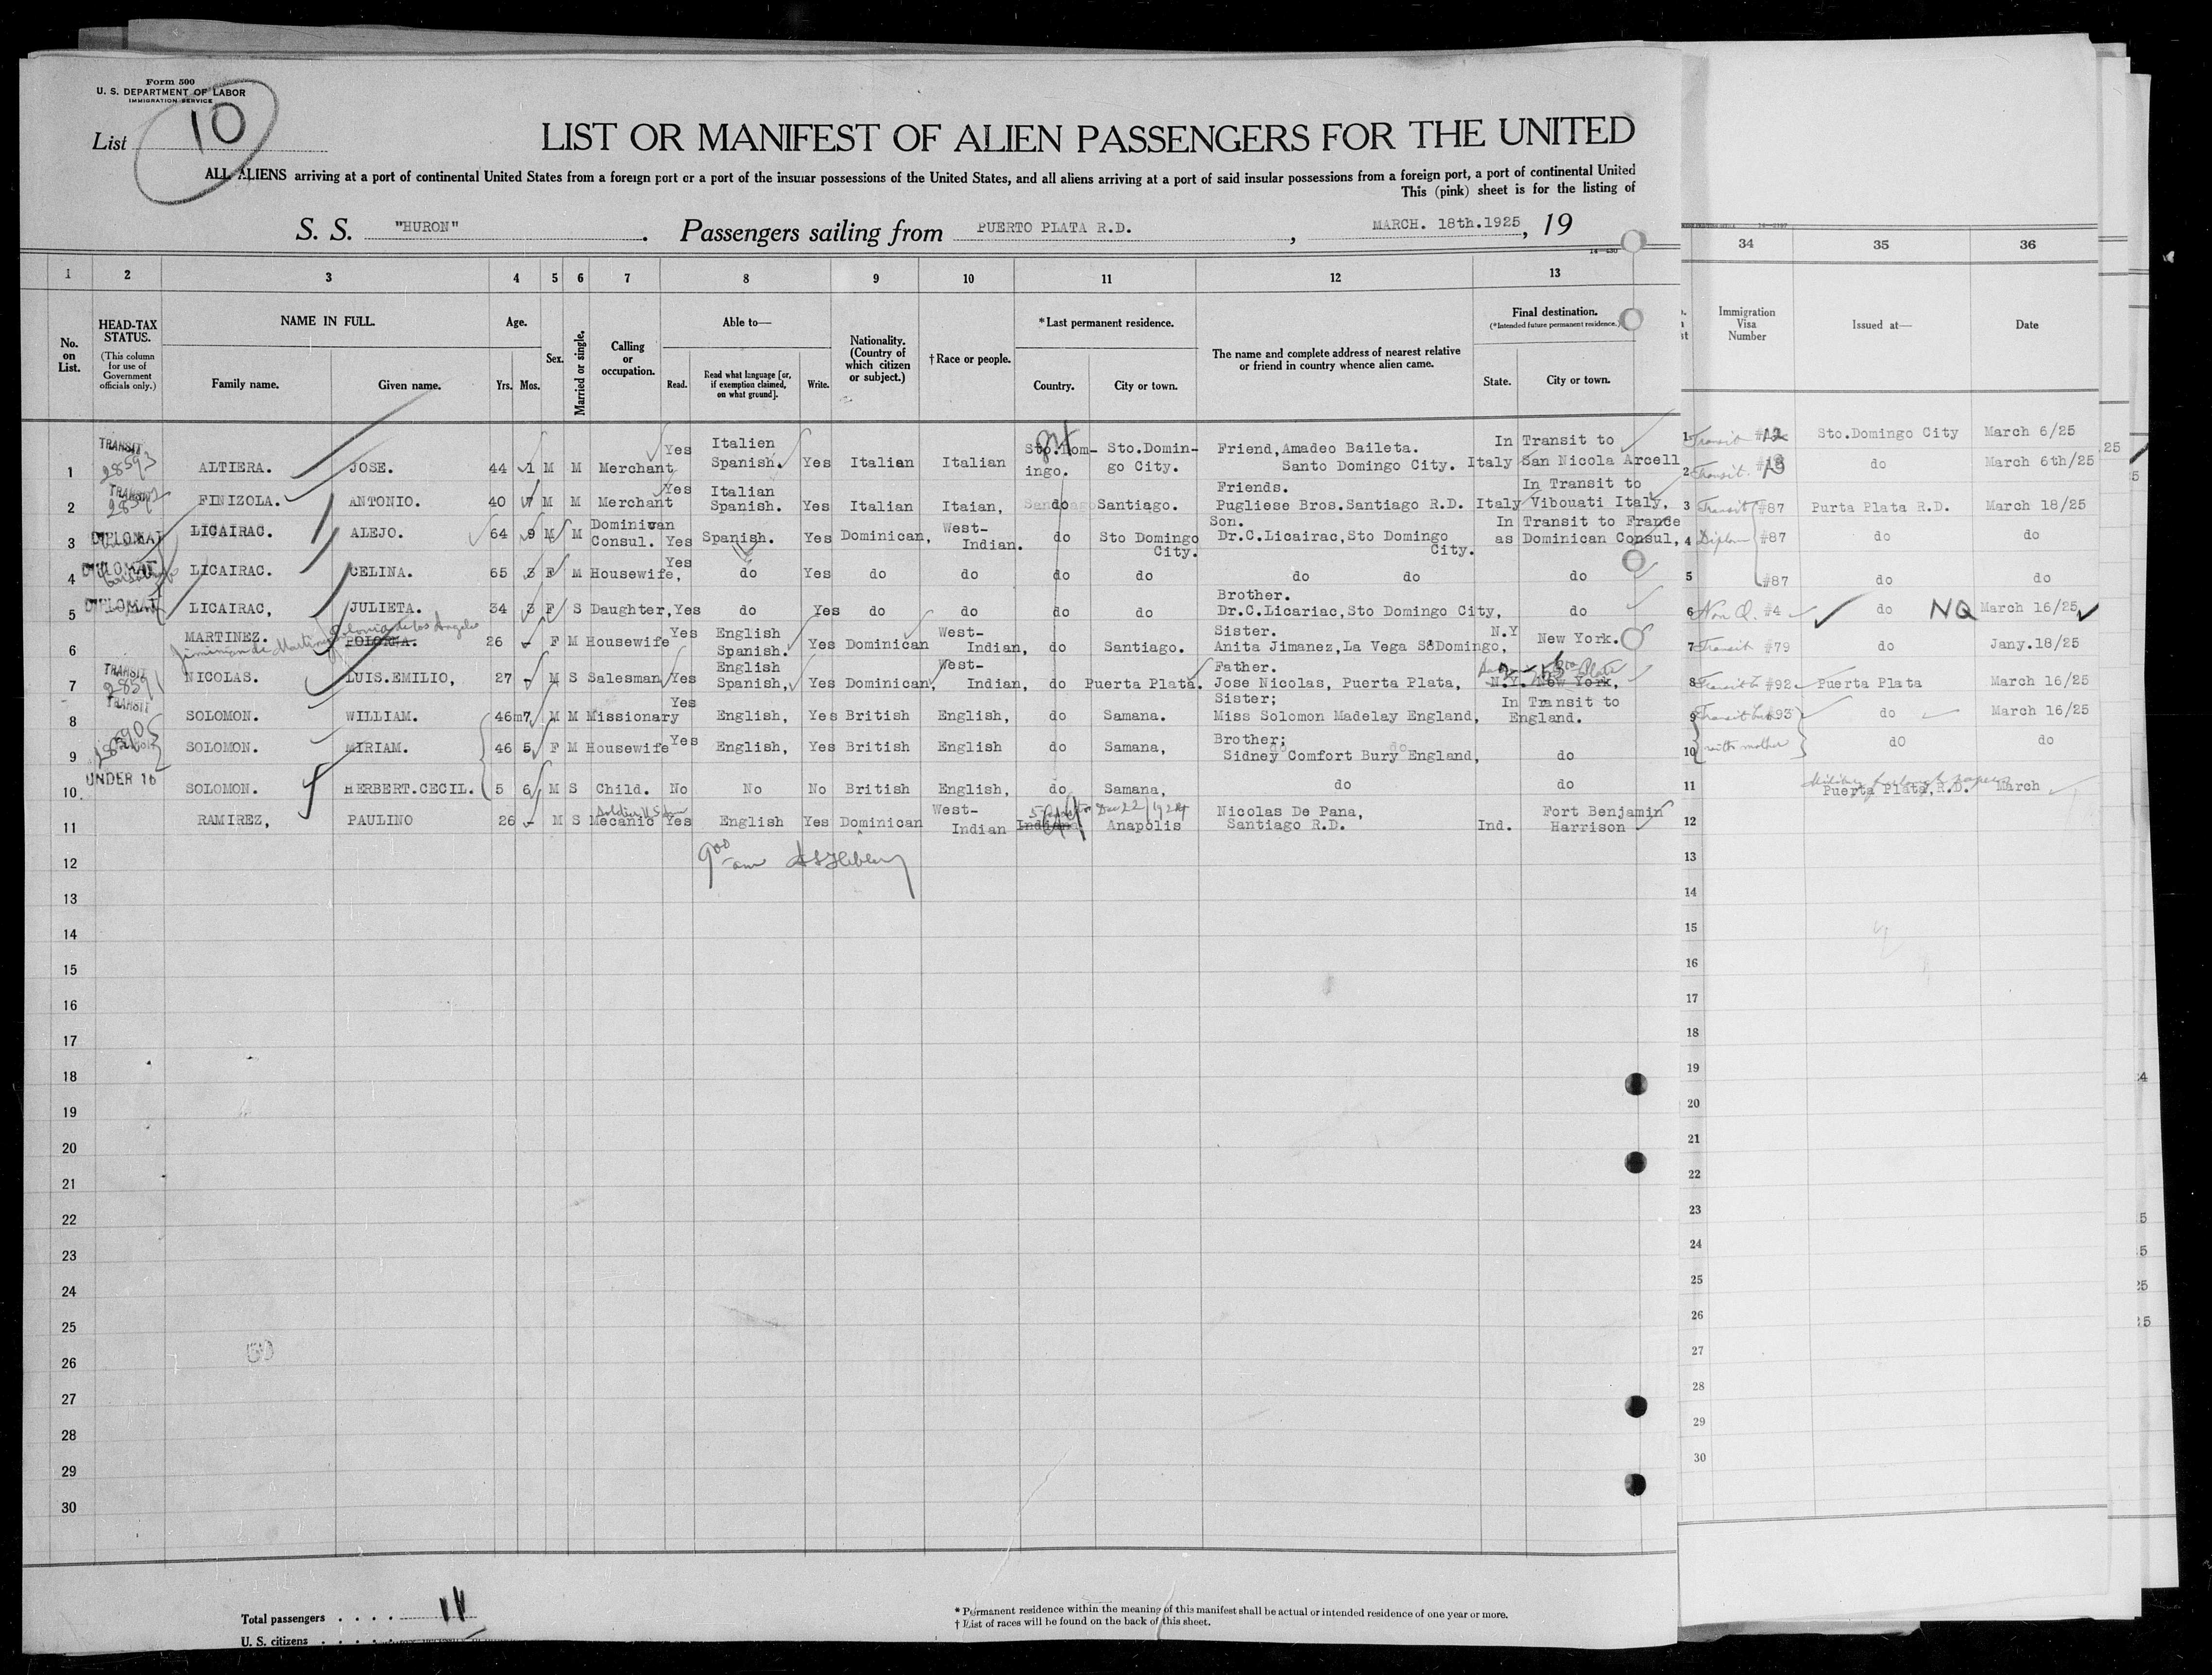 Form 500
U. S. DEPARTMENT OF LABOR
IMMIGRATION SERVICE
List 10
LIST OR MANIFEST OF ALIEN PASSENGERS FOR THE UNITED
ALL ALIENS arriving at a port of continental United States from a foreign port or a port of the insular possessions of the United States, and all aliens arriving at a port of said insular possessions from a foreign port, a port of continental United
This (pink) sheet is for the listing of
S. S. "HURON" . Passengers sailing from PUERTO PLATA R.D. , MARCH. 18th.1925 , 19
1 2 3 4 5 6 7 8 9 10 11 12 13 34 35 36
No. on List.
HEAD-TAX STATUS.
(This column for use of Government officials only.)
NAME IN FULL.
Family name. Given name.
Age.
Yrs. Mos.
Sex.
Married or single.
Calling or occupation.
Able to—
Read. Read what language [or, if exemption claimed, on what ground]. Write.
Nationality. (Country of which citizen or subject.)
† Race or people.
* Last permanent residence.
Country. City or town.
The name and complete address of nearest relative or friend in country whence alien came.
Final destination.
(*Intended future permanent residence.)
State. City or town.
Immigration Visa Number
Issued at—
Date
1 TRANSIT 28593 ALTIERA. JOSE. 44 1 M M Merchant Yes Italien Spanish. Yes Italian Italian Sto.Dom-ingo. Sto.Domin-go City. Friend,Amadeo Baileta. Santo Domingo City. Italy In Transit to San Nicola Arcell
2 TRANSIT FINIZOLA. ANTONIO. 40 M M Merchant Yes Italian Spanish. Yes Italian Itaian, do Santiago. Friends. Pugliese Bros.Santiago R.D. Italy In Transit to Vibouati Italy,
3 DIPLOMAT LICAIRAC. ALEJO. 64 9 M M Dominican Consul. Yes Spanish. Yes Dominican, West-Indian. do Sto Domingo City. Son. Dr.C.Licairac,Sto Domingo City. In Transit to France as Dominican Consul,
4 DIPLOMAT LICAIRAC. CELINA. 65 3 F M Housewife, Yes do Yes do do do do do do do
5 DIPLOMAT LICAIRAC, JULIETA. 34 3 F S Daughter, Yes do Yes do do do do Brother. Dr.C.Licariac,Sto Domingo City, do
6 MARTINEZ. POLONIA. Polonia de los Angeles Jiminian de Martinez 26 - F M Housewife Yes English Spanish. Yes Dominican West-Indian, do Santiago. Sister. Anita Jimanez,La Vega S.Domingo, N.Y New York.
7 TRANSIT 28591 NICOLAS. LUIS.EMILIO, 27 - M S Salesman Yes English Spanish, Yes Dominican, West-Indian, do Puerta Plata. Father. Jose Nicolas, Puerta Plata, N.Y. New York,
8 TRANSIT SOLOMON. WILLIAM. 46m7 M M Missionary Yes English, Yes British English, do Samana. Sister; Miss Solomon Madelay England, In Transit to England.
9 SOLOMON. MIRIAM. 46 5 F M Housewife Yes English, Yes British English do Samana, Brother; Sidney Comfort Bury England, do
10 UNDER 16 SOLOMON. HERBERT.CECIL. 5 6 M S Child. No No No British English, do Samana, do do
11 RAMIREZ, PAULINO 26 - M S Mecanic Soldier U S Army Yes English Yes Dominican West-Indian Indiana Anapolis Dec 22/1924 Nicolas De Pana, Santiago R.D. Ind. Fort Benjamin Harrison
12
13
14
15
16
17
18
19
20
21
22
23
24
25
26
27
28
29
30
1 Transit #12 Sto.Domingo City March 6/25
2 Transit. #13 do March 6th/25
3 Transit #87 Purta Plata R.D. March 18/25
4 Diplom #87 do do
5 #87 do do
6 Non Q. #4 do NQ March 16/25
7 Transit #79 do Jany.18/25
8 Transit #92 Puerta Plata March 16/25
9 Transit #93 do March 16/25
10 with mother dO do
11 Military furlough papers Puerta Plata,R.D. March
12
13
14
15
16
17
18
19
20
21
22
23
24
25
26
27
28
29
30
Total passengers . . . . 11
U. S. citizens . . . . .
* Permanent residence within the meaning of this manifest shall be actual or intended residence of one year or more.
† List of races will be found on the back of this sheet.